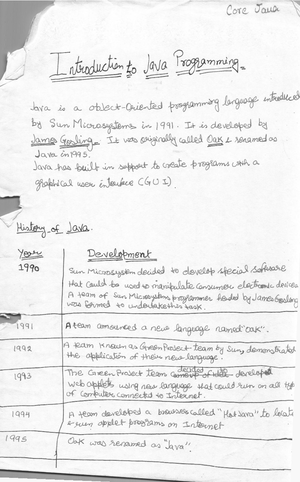 Core Java
Introduction to Java Programming
Java is a object-Oriented programming language introduced
by Sun Microsystems in 1991. It is developed by
James Gosling. It was originally called Oak & renamed as
Java in 1995.
Java has built in support to create programs with a
graphical user interface (GUI).
History of Java.
Year Development
1990 Sun Microsystem decided to develop special software
that could be used to manipulate consumer electronic devices
A team of Sun Microsystems programmer headed by James Gosling
was formed to undertake this task.
1991 A team announced a new language named "oak".
1992 A team known as Green Project team by Sun, demonstrated
the application of their new language.
1993 The Green Project team decided developed
web applets using new language that could run on all type
of computer connected to Internet.
1994 A team developed a browser called "HotJava" to locate
& run applet programs on Internet
1995 Oak was renamed as "Java".